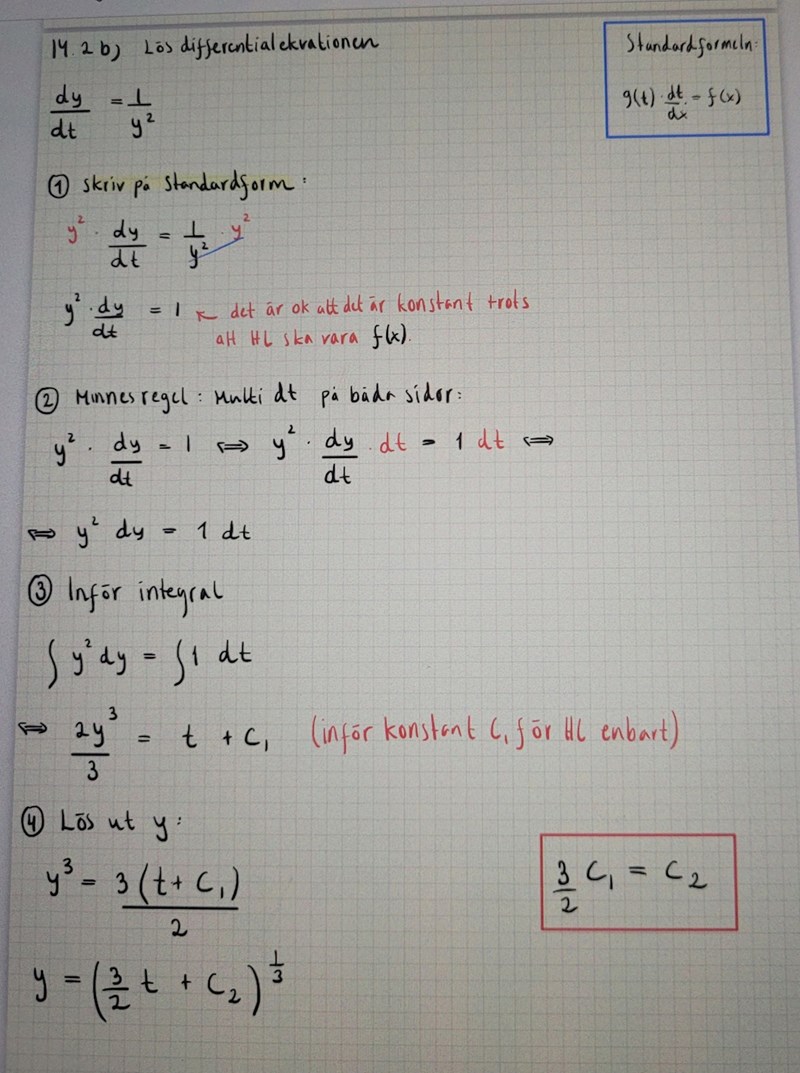 14.2 b) Lös differentialekvationen
Standardformeln:
dy/dt = 1/y²
g(t) · dt/dx = f(x)
① Skriv på Standardform:
y² · dy/dt = 1/y² · y²
y² · dy/dt = 1 ← det är ok att det är konstant trots
att HL ska vara f(x).
② Minnesregel: Multi dt på båda sidor:
y² · dy/dt = 1 ⇔ y² · dy/dt · dt = 1 dt ⇔
⇔ y² dy = 1 dt
③ Inför integral
∫ y² dy = ∫ 1 dt
⇔ 2y³/3 = t + C₁ (inför konstant C₁ för HL enbart)
④ Lös ut y:
y³ = 3(t + C₁)/2
3/2 C₁ = C₂
y = (3/2 t + C₂)^(1/3)